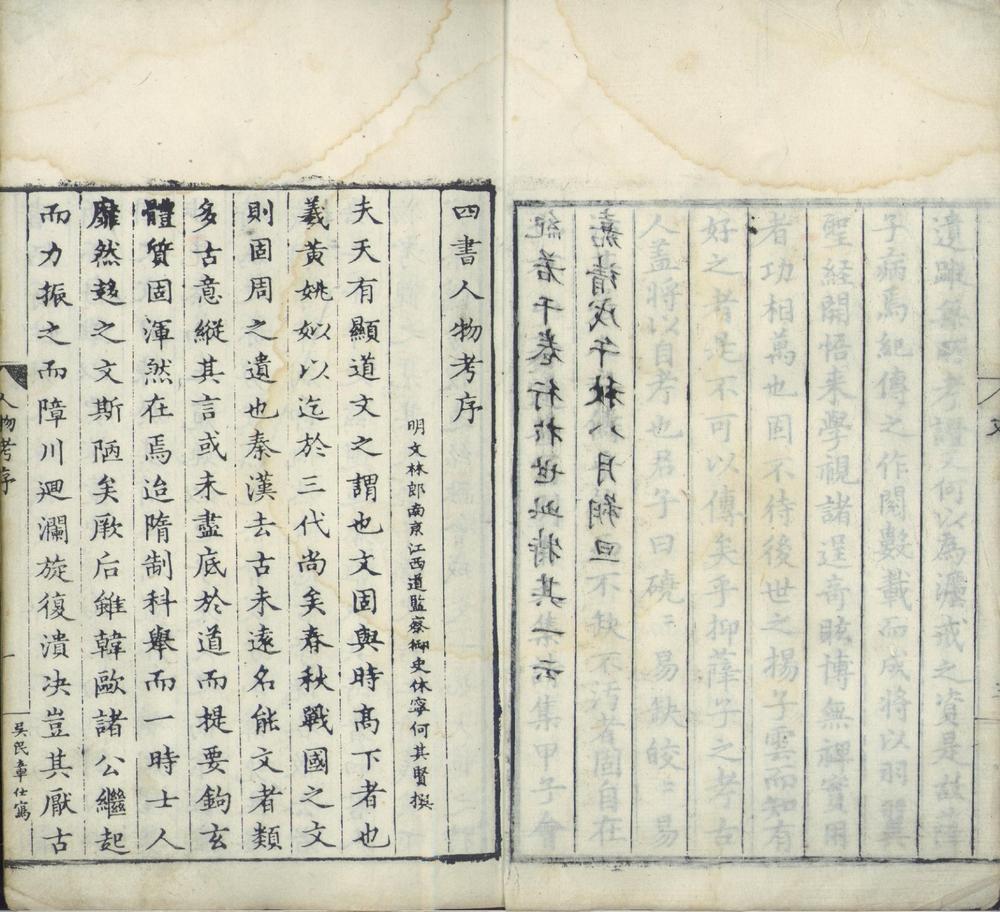 遺雖無所考證又何以為灋戒之資是故薛
子病焉紀傳之作閱數載而成將以羽翼
聖經開悟來學視諸逞奇眩博無裨實用
者功相萬也固不待後世之揚子雲而知有
好之者況不可以傳矣乎抑薛子之考古
人蓋將以自考也君子曰磽〻易缺皎〻易
不缺不汚者固自在
嘉靖戊午秋八月朔旦
集甲子會
紀若干卷行於世此特其一云
四書人物考序
明文林郎南京江西道監察御史休寧何其賢撰
夫天有顯道文之謂也文固與時髙下者也
羲黄姚姒以迄於三代尚矣春秋戰國之文
則固周之遺也秦漢去古未遠名能文者類
多古意縱其言或未盡底於道而提要鉤玄
體質固渾然在焉迨隋制科舉而一時士人
靡然趍之文斯陋矣厥后雖韓歐諸公繼起
而力振之而障川廻瀾旋復潰决豈其厭古
人物考序
一
吴民章仕寫